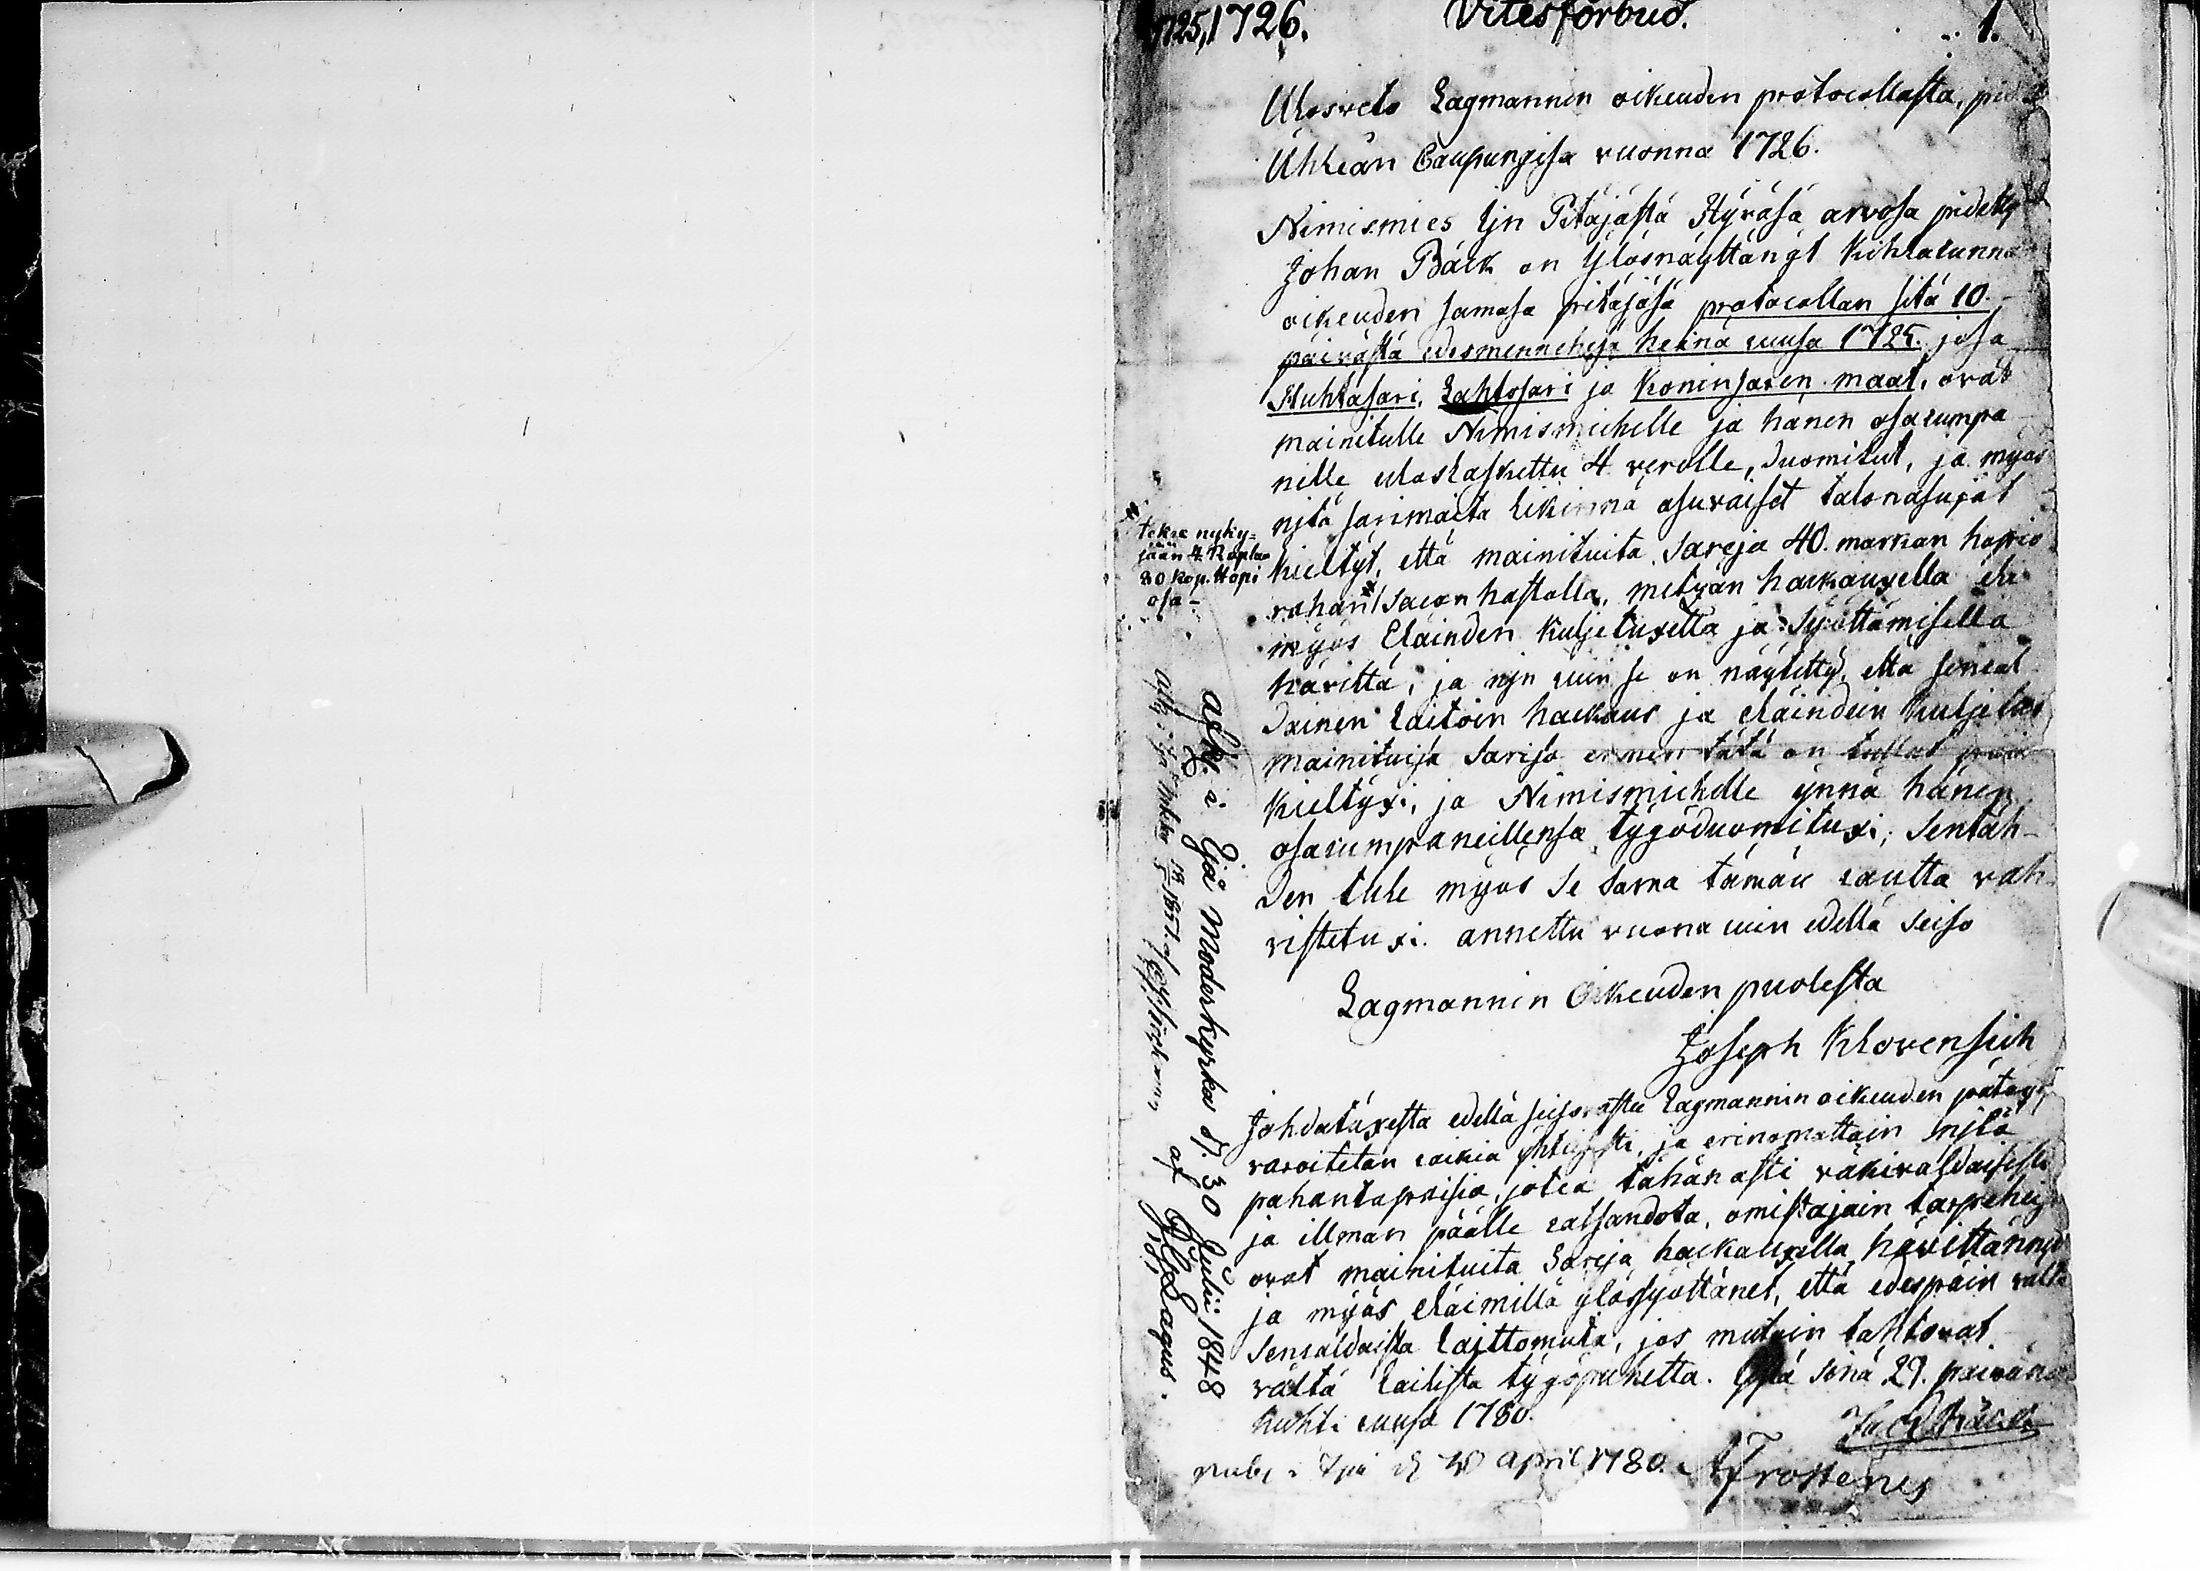 1725, 1726. Vitesförbud. 1.
Ulosveto Lagmannin oikeuden protocollasta,
Uhlean Caupungisa vuonna 1726.
Nimismies Ijn Pitäjästä Hyväsä arvosa pidetty
Johan Bäck on Ylösnäyttänyt Kihlacunna
oikeuden samasa pitäjäsä protocollan sitä 10.
päivästä edesmennehesä heinä cuusa 1725. josa
Huhtasari, Lahtosari ja Koninsaren maat, ovat
mainitulle Nimismiehelle ja hänen osacumpa
nille uloslaskettu 4 verolle, duomitut, ja myös
nijtä sarimaita likinnä asuvaiset talonasujat
kieltyt, että mainituita Sareja 40. marcan hopia
rahan * sacon hastolla, metzän hackauxella eli
myös Eläinden kuljetuxella ja Syöttämisellä
hävittä, ja nijn cuin se on näytetty, että sencal
dainen laitoin hackaus ja eläindein kuljetus
mainituisa Sarisa ennen tätä on tullut
kieltyxi, ja Nimismiehelle ynnä hänen
osacumpaneillensa tygöduomituxi; Sentäh-
den tule myös se sama tämän cautta vah-
vistetuxi. annettu vuona cuin edellä seiso
Lagmannin Oikeuden puolesta
Joseph
Johdatuxesta edellä seisovasta Lagmannin oikeuden
varoitetan caikia yhteisesti, ja erinomattain nijtä
pahantapaisia, jotca tähän asti väkivaldaisesti
ja ilman päälle catsandota, omistajain
ovat mainituita Sareja hackauxella hävittännet
ja myös eläimillä ylössyöttänet, että edespäin
sencaldaista laittomuta, jos mutoin tahtovat
vältä lailista tygöpuhetta. Ijstä sinä 29. päivänä
huhti cuusa 1780.
publ. i Ijo d. april 1780. A Frosterus
* tekee nyky-
jään 4 Rupla
80 kop. Hopi
asa -
afk. i Ijå Moderkyrka d. 30 Julii 1848
af Lagus.